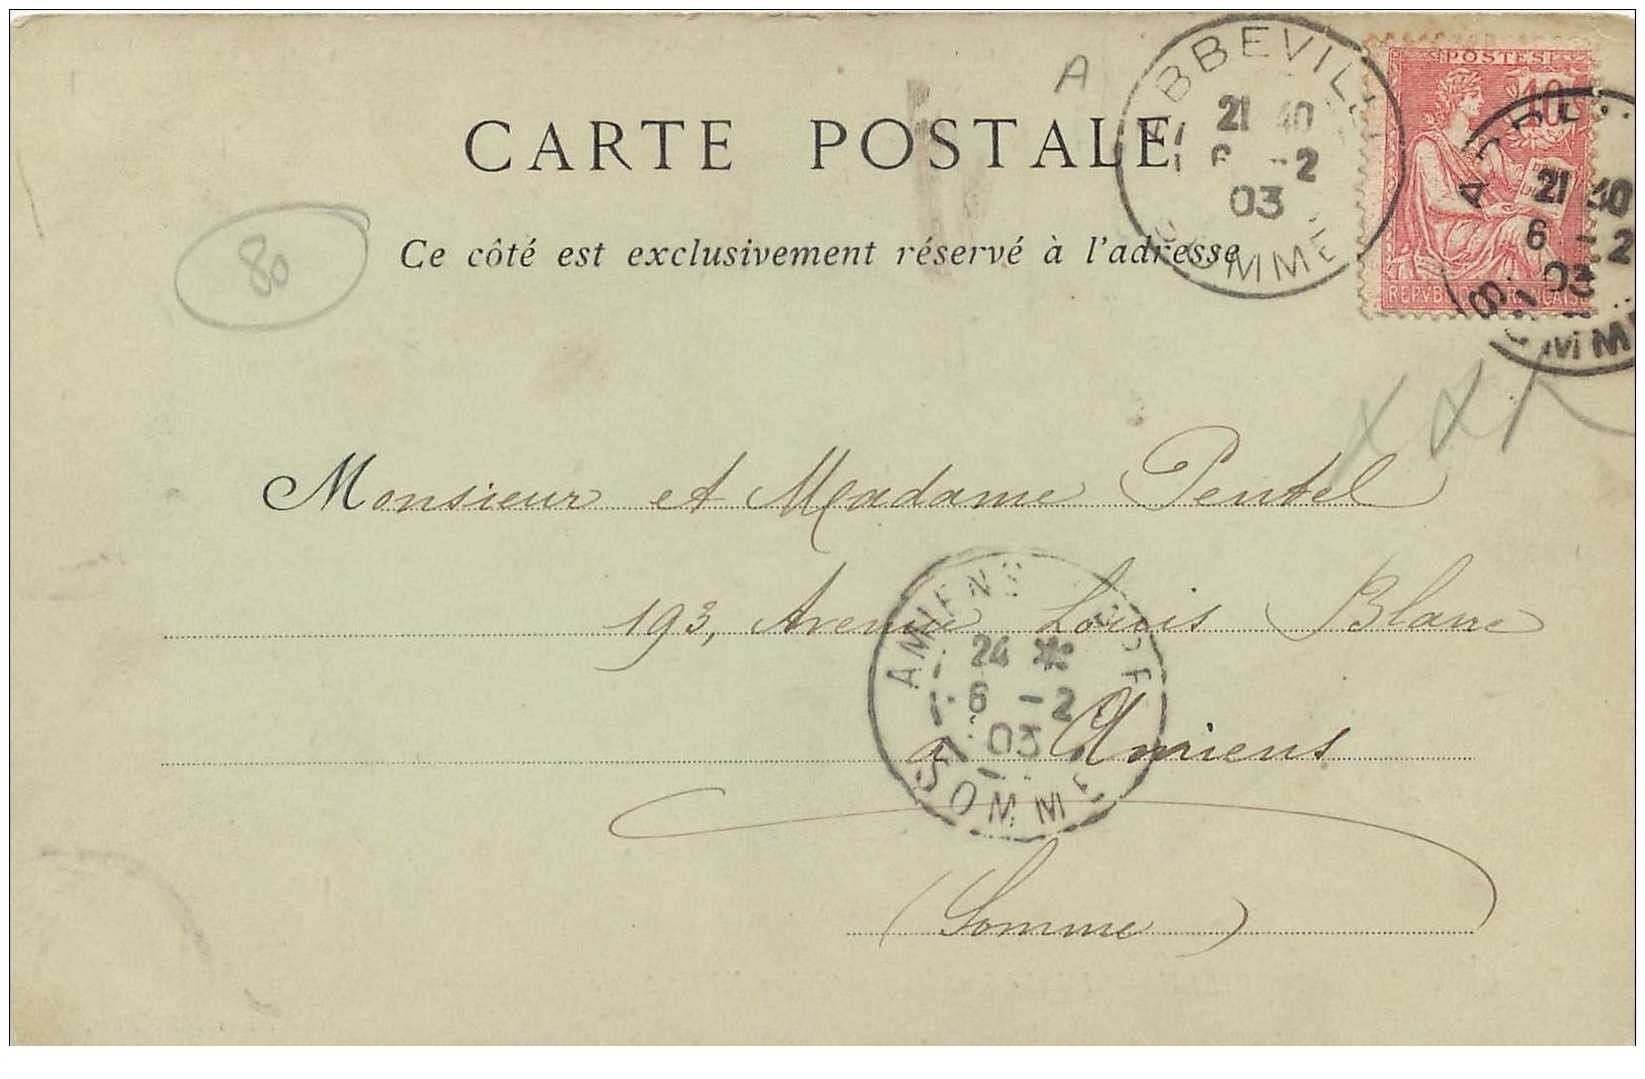 A
CARTE POSTALE
Ce côté est exclusivement réservé à l'adresse
80
ABBEVILLE
21 40
6 -2
03
SOMME
POSTES
10
REPVBLIQUE FRANÇAISE
21 40
6 -2
03
Monsieur et Madame Pentel
193, Avenue Louis Blanc
à Amiens
(Somme)
AMIENS
24
6 -2
03
SOMME